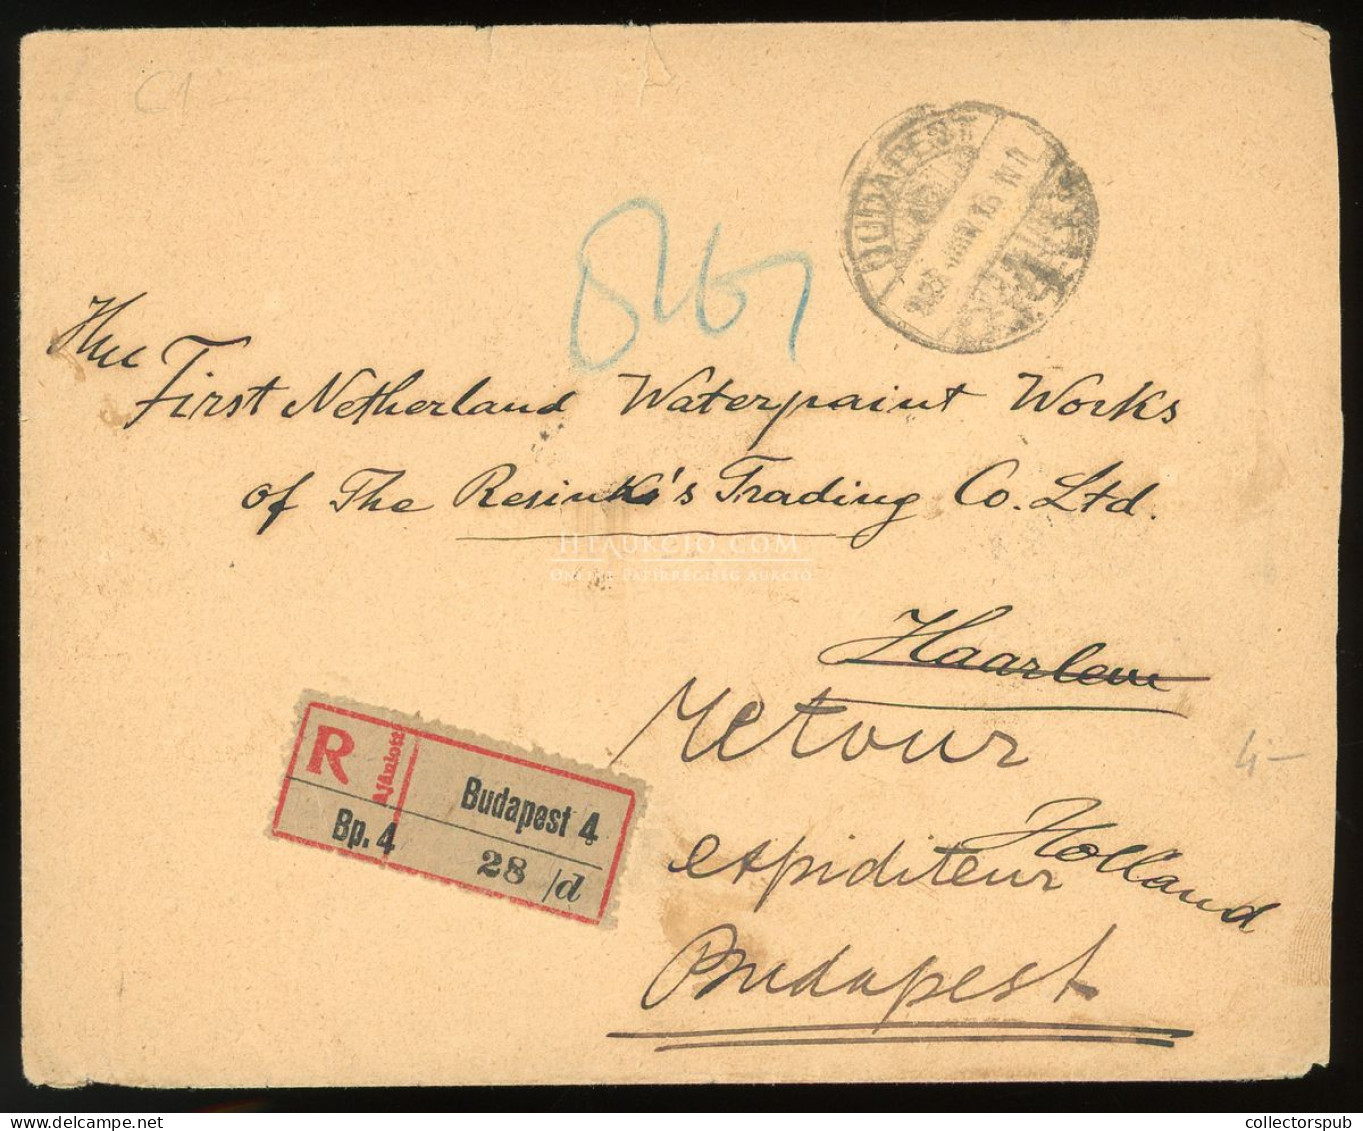 C1
BUDAPEST
First Netherland Waterpaint Works
of The Resink's Trading Co. Ltd.
HTAUKCIO.COM
ONLINE PAPÍRRÉGISÉG AUKCIÓ
Haarlem
Retour
Holland
expiditeur
Budapest
R Ajánlott
Budapest 4
Bp. 4
28 /d
4-
collectorspub